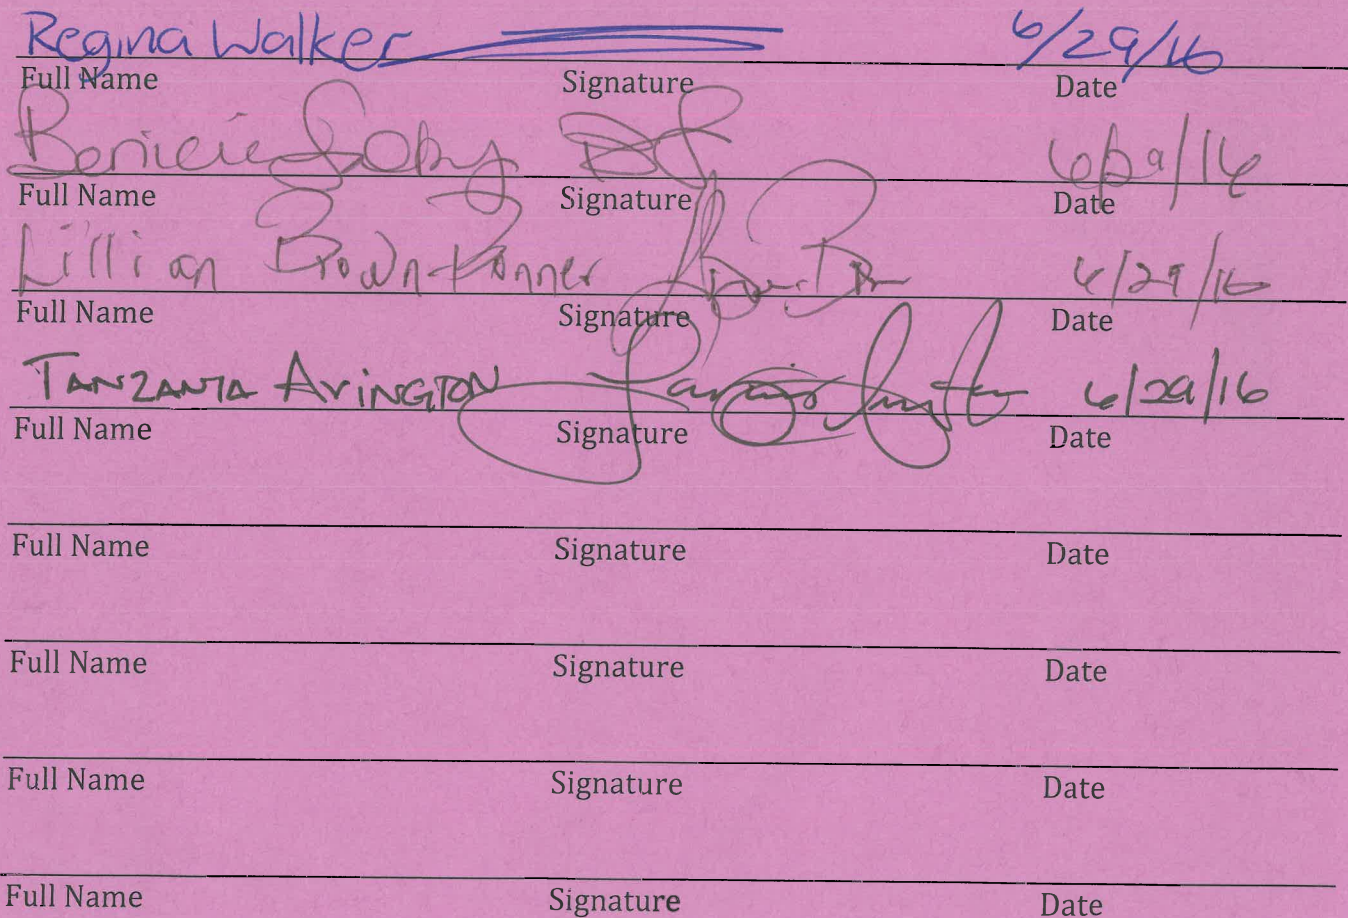 Regina Walker 6/29/16
Full Name Signature Date
6/29/16
Full Name Signature Date
Lillian Brown- 6/29/16
Full Name Signature Date
TANZANIA ArINGTON 6/29/16
Full Name Signature Date
Full Name Signature Date
Full Name Signature Date
Full Name Signature Date
Full Name Signature Date